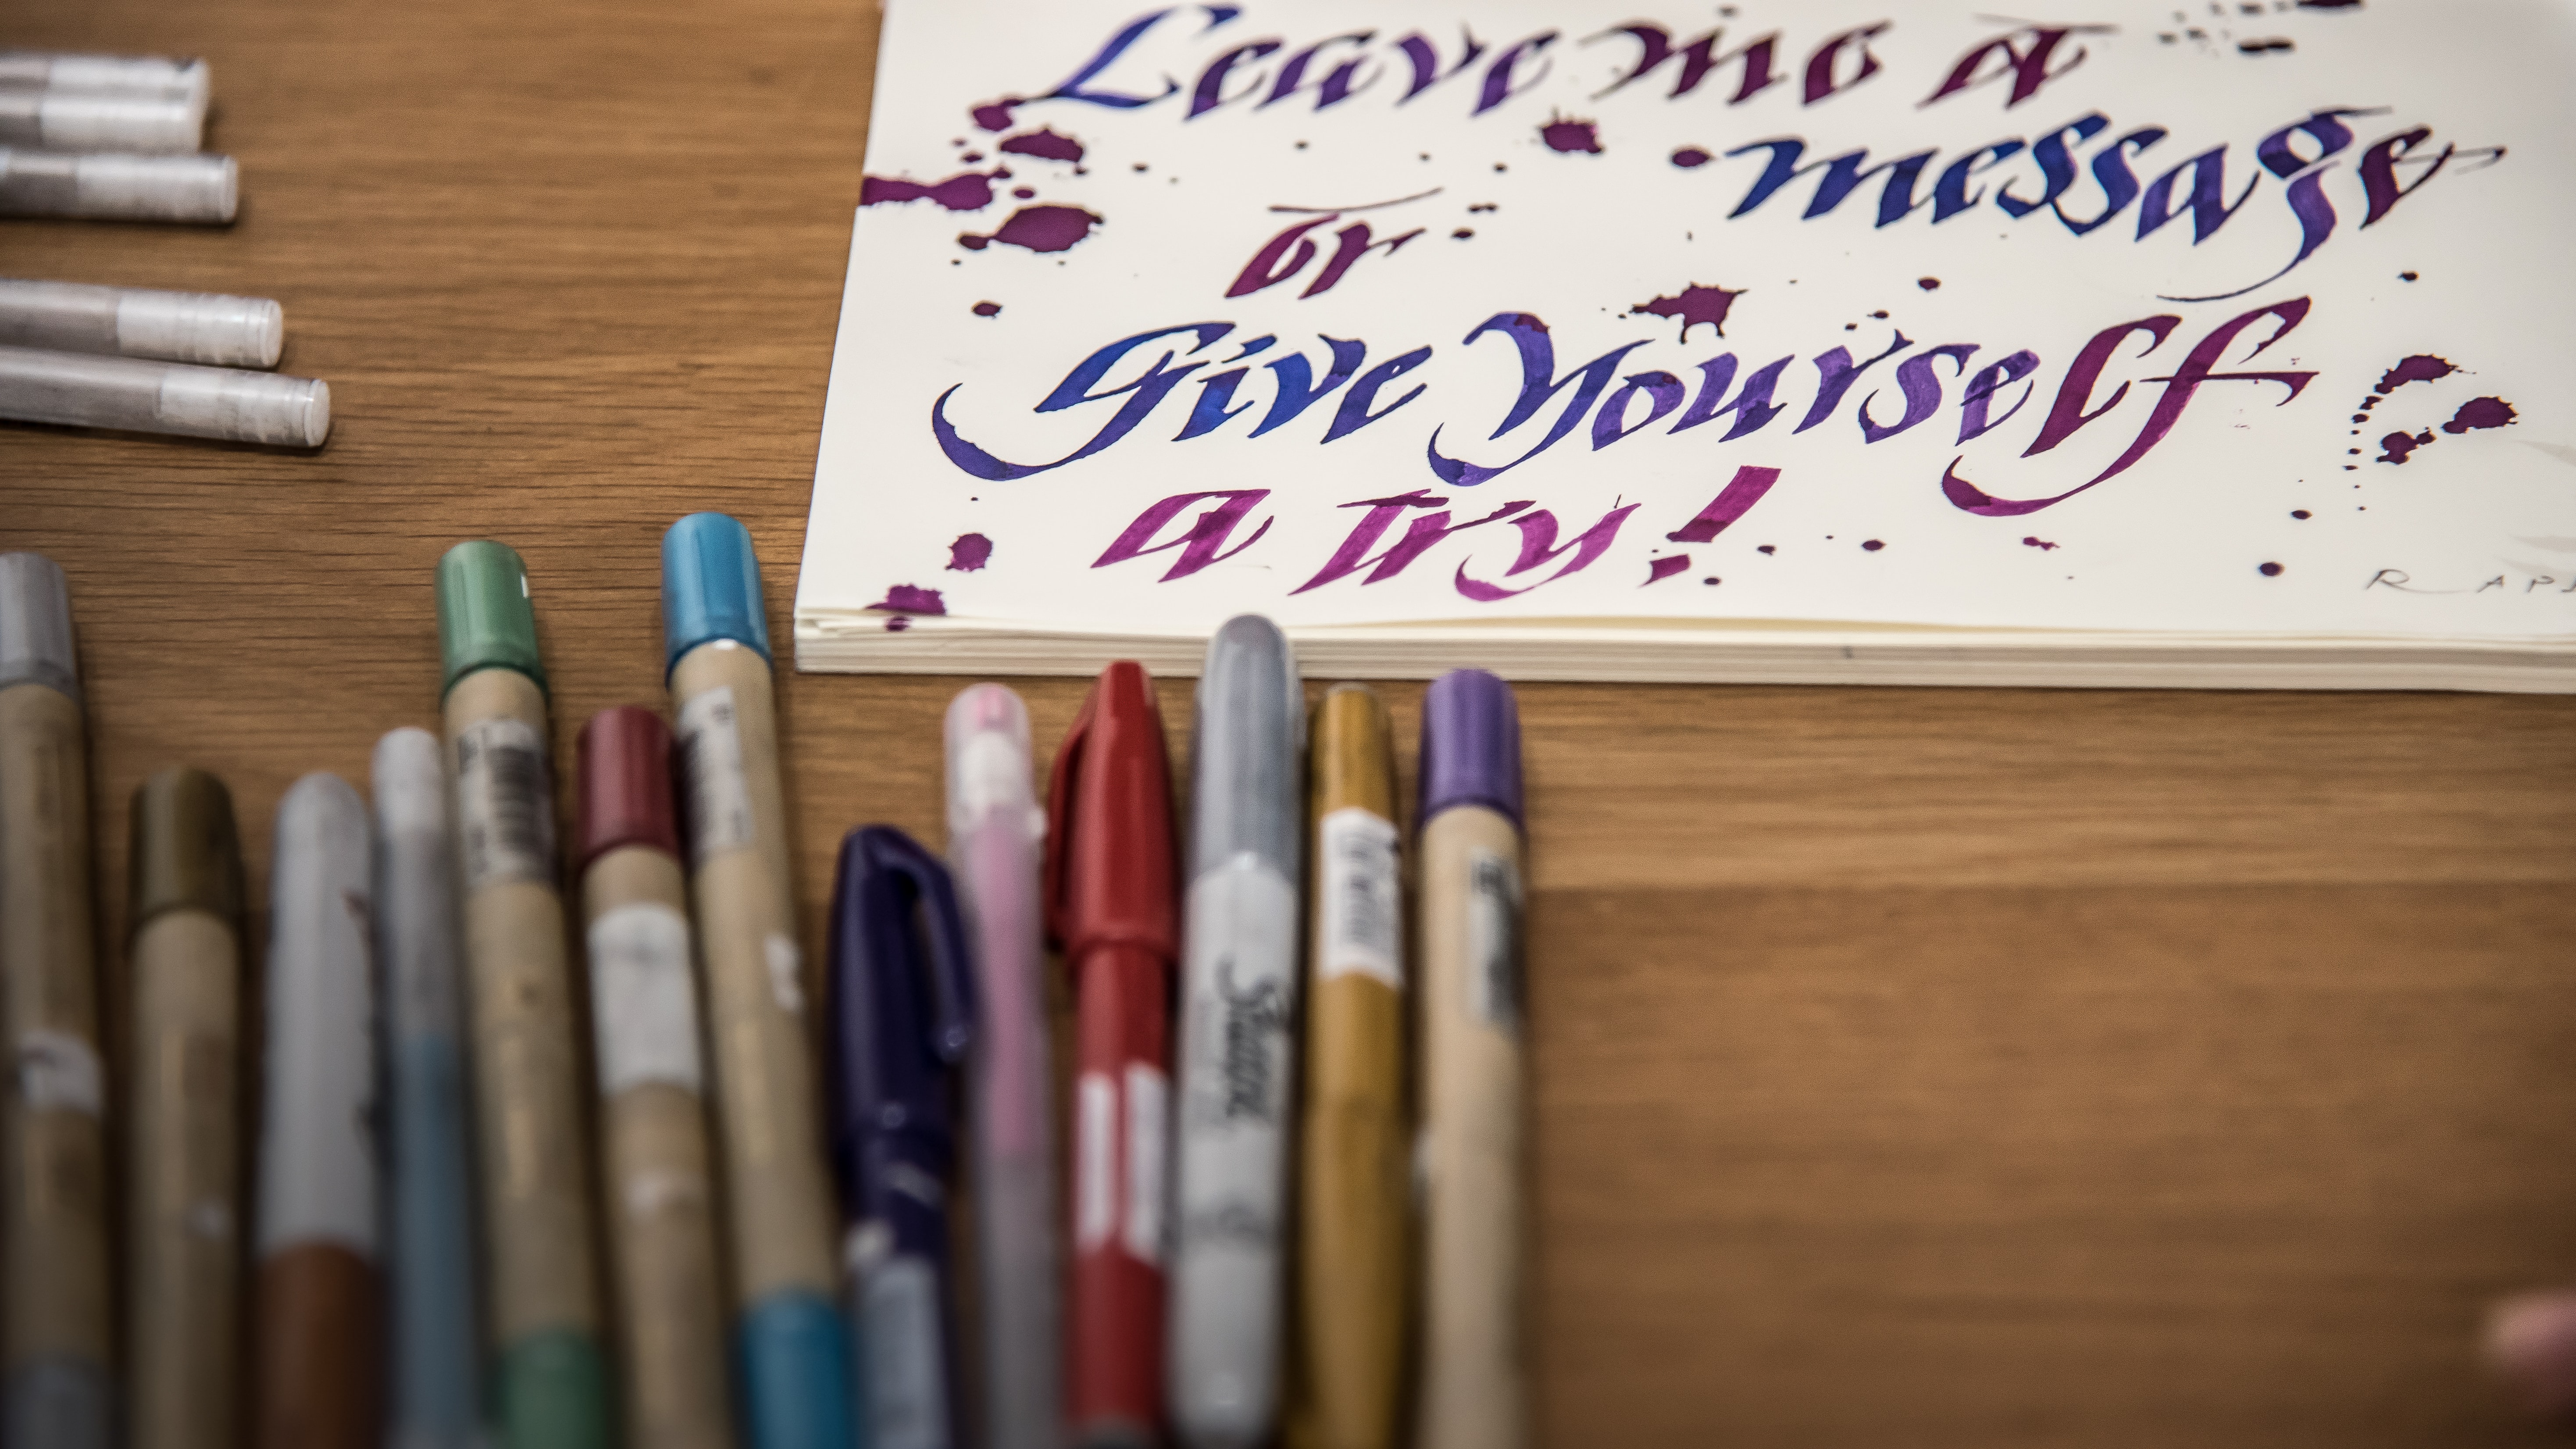 Leave me a
message
or
Give Yourself
a try!
Sharpie